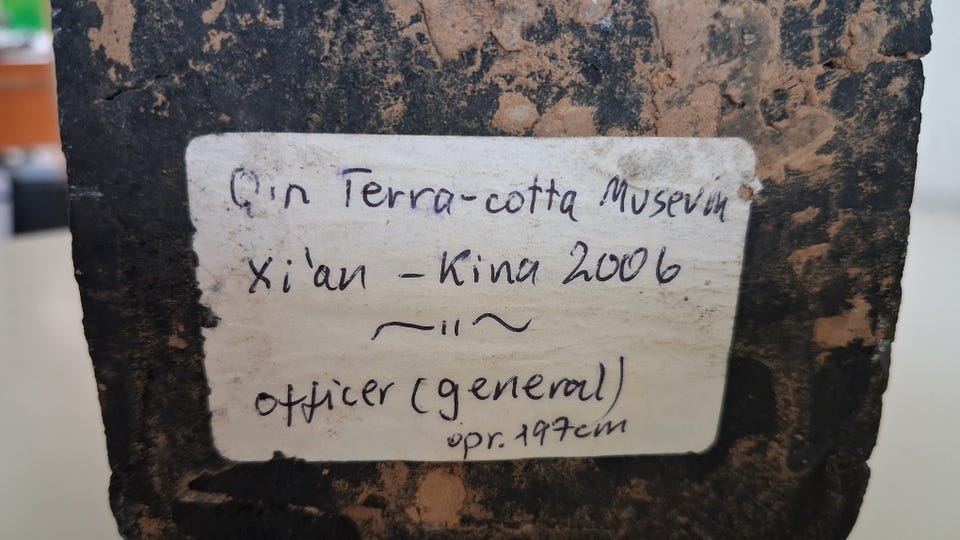 Qin Terra-cotta Museum
Xi'an - Kina 2006
~ıı~
officer (general)
opr. 197cm